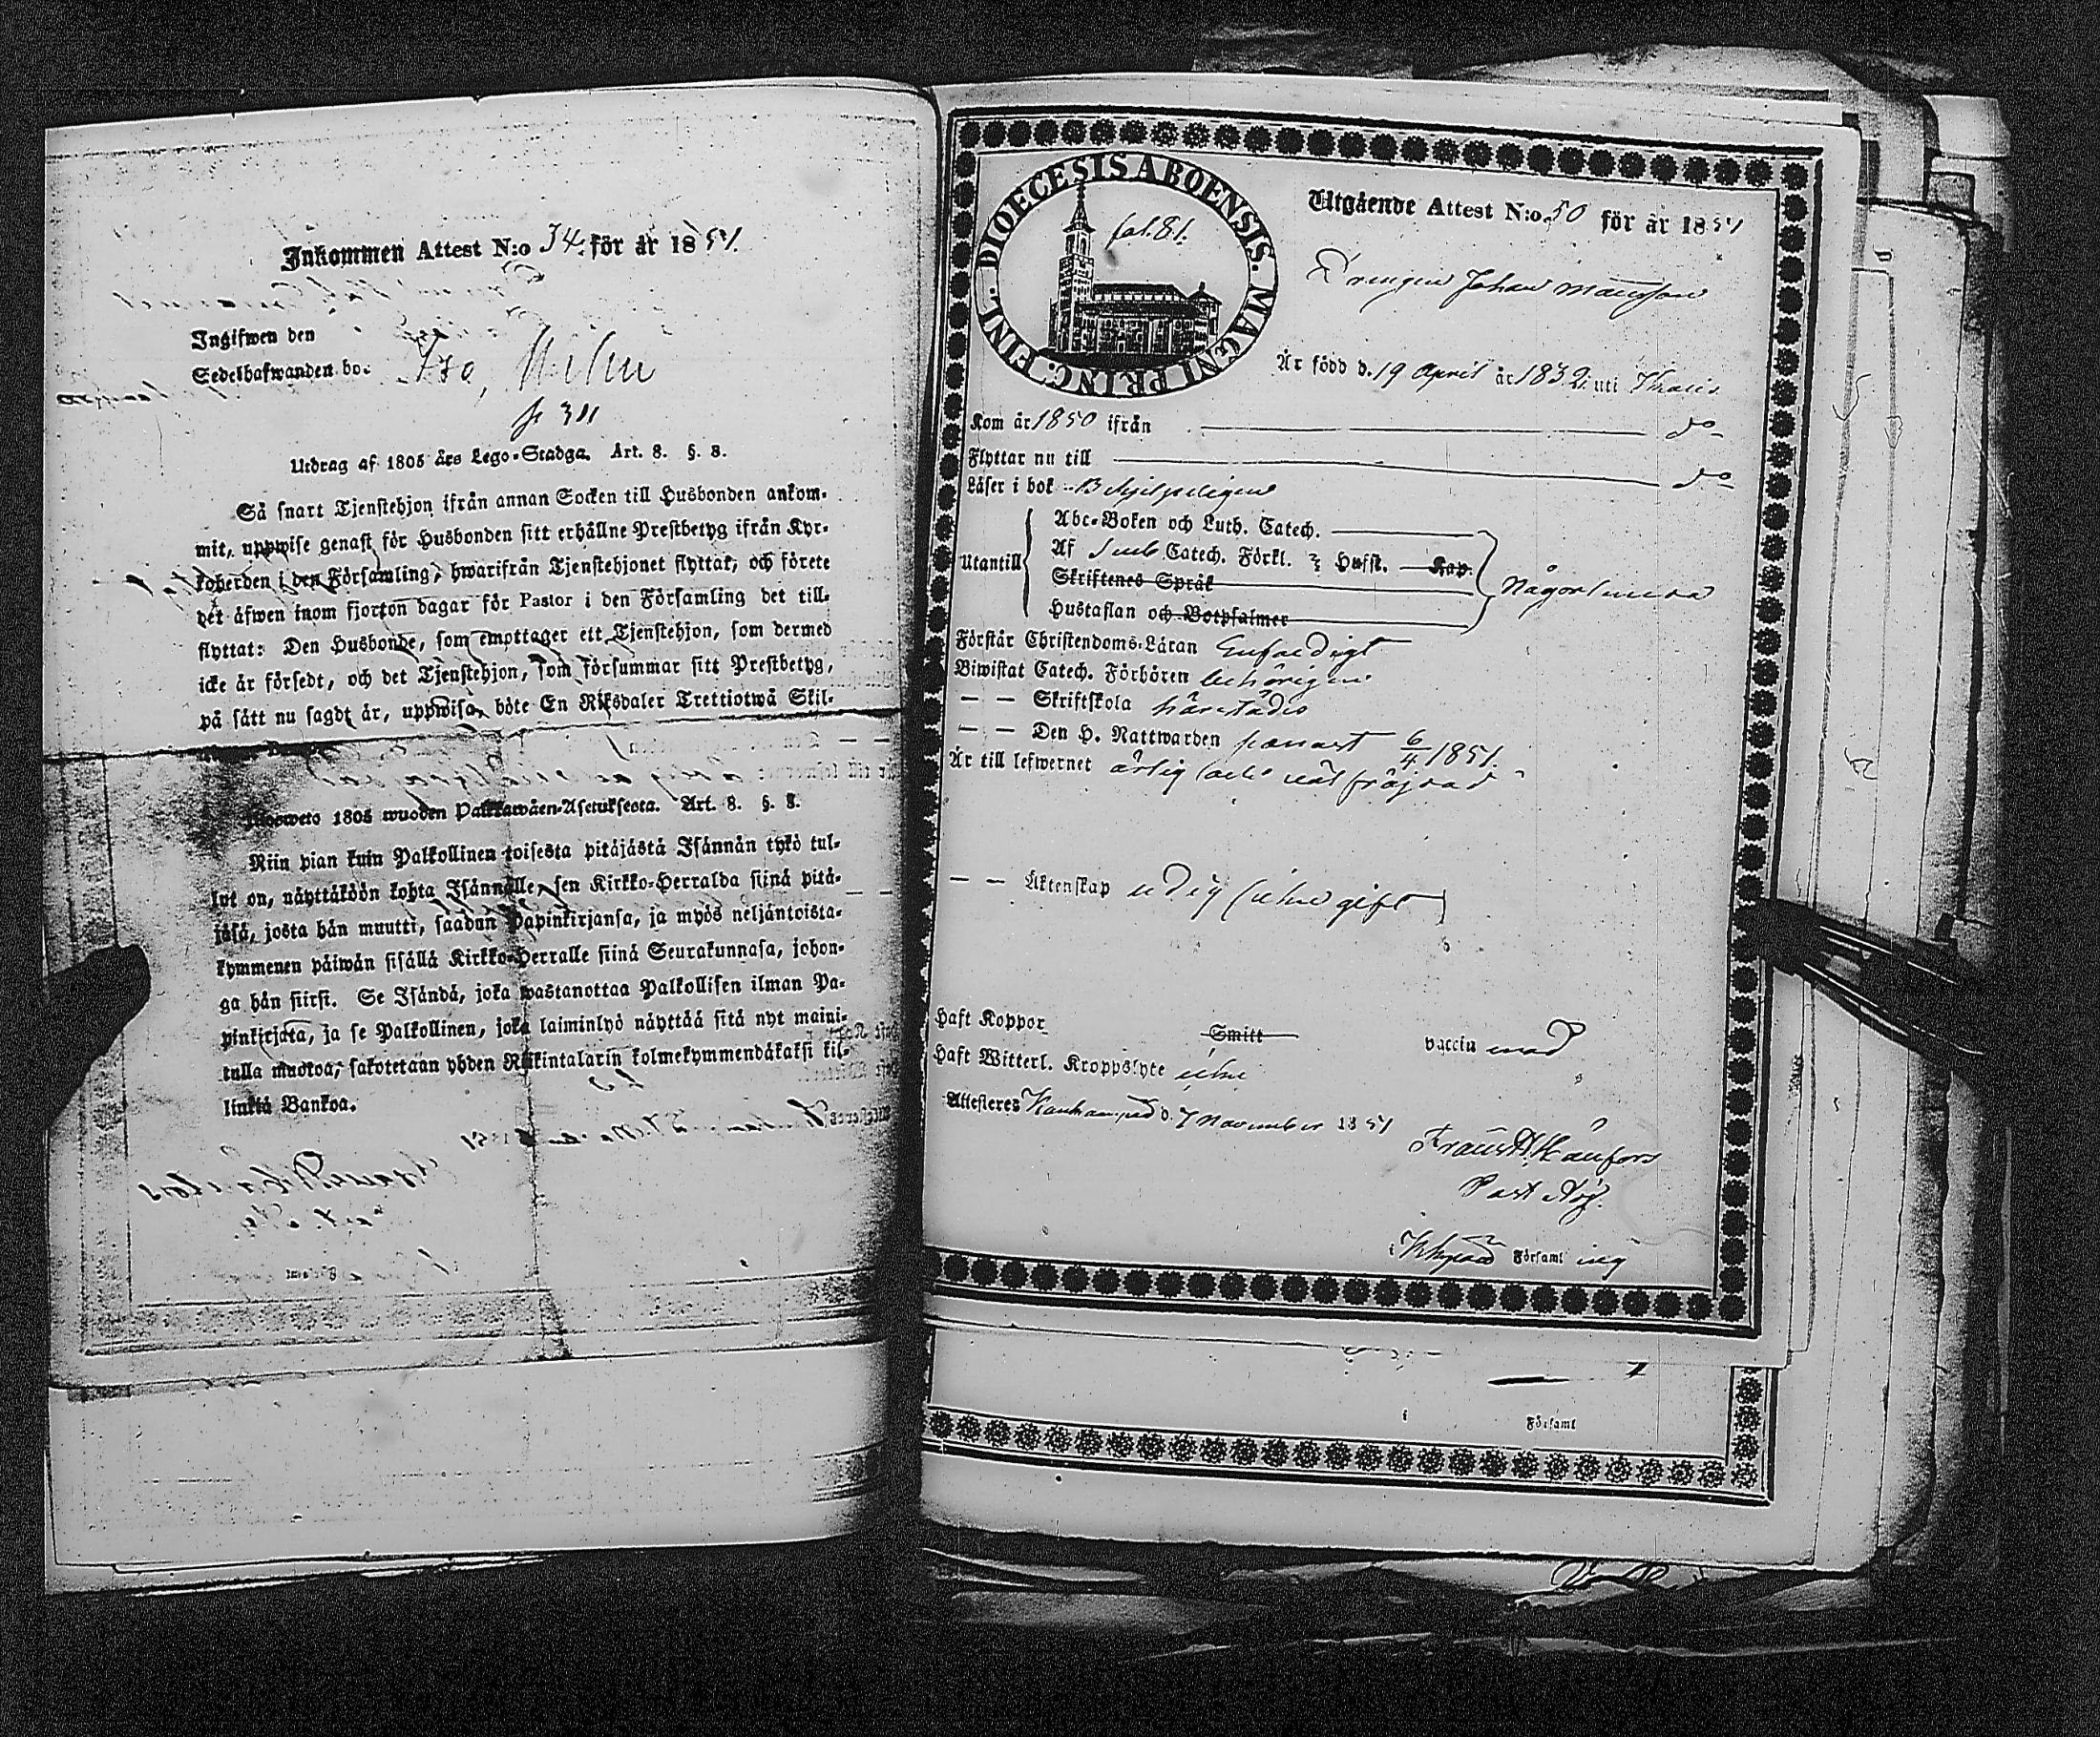 Inkommen Attest N:o 34. för år 1851.
Ingifwen den
Sedelhafwanden bo:
311
Utdrag af 1805 års Lego-Stadga. Art. 8. §. 8.
Så snart Tjenstehjon ifrån annan Socken till Husbonden ankom-
mit, uppwise genast för Husbonden sitt erhållne Prestbetyg ifrån Kyr-
koherden i den Församling, hwarifrån Tjenstehjonet flyttat, och förete
det äfwen inom fjorton dagar för Pastor i den Församling det till-
flyttat: Den Husbonde, som emottager ett Tjenstehjon, som dermed
icke är försedt, och det Tjenstehjon, som försummar sitt Prestbetyg,
på sätt nu sagdt är, uppwisa, böte En Riksdaler Trettiotwå Skil-
1805 wuoden Palkkawäen-Asetuksesta. Art. 8. §. 8.
Niin pian kuin Palkollinen toisesta pitäjästä Isännän tykö tul-
lut on, näyttäköön kohta Isännälle sen Kirkko-Herralda siinä pitä-
jäsä, josta hän muutti, saadun Papinkirjansa, ja myös neljäntoista-
kymmenen päiwän sisällä Kirkko-Herralle siinä Seurakunnasa, johon-
ga hän siirsi. Se Isändä, joka wastanottaa Palkollisen ilman Pa-
pinkirjata, ja se Palkollinen, joka laiminlyö näyttää sitä nyt maini-
tulla muotoa, sakotetaan yhden Riikintalarin kolmekymmendäkaksi kil-
linkiä Bankoa.
DIOECESIS ABOENSIS. MAGNI PRINC. FINL.
fol. 81.
Utgående Attest N:o 50 för år 1851
Drengen Johan Mansson
Är född d. 19 April år 1832 uti
Kom år 1850 ifrån do
Flyttar nu till do
Läser i bok
Abc-Boken och Luth. Catech.
Utantill Af Catech. Förkl. Hufst. Kap.
Skriftenes Språk
Hustaflan och Botpsalmer
Någorlunda
Förstår Christendoms-Läran Enfaldigt
Biwistat Catech. Förhören behörigen
— — Skriftskola härstädes
— — Den H. Nattwarden senast 6/4 1851.
Är till lefwernet ärlig och väl fräjdad
— — Äktenskap ledig (icke gift)
Haft Koppor Smitt vaccin med
Haft Witterl. Kroppslyte icke
Attesteres d. 7 November 1851
Past. Adj.
i Församl ing
i Församl